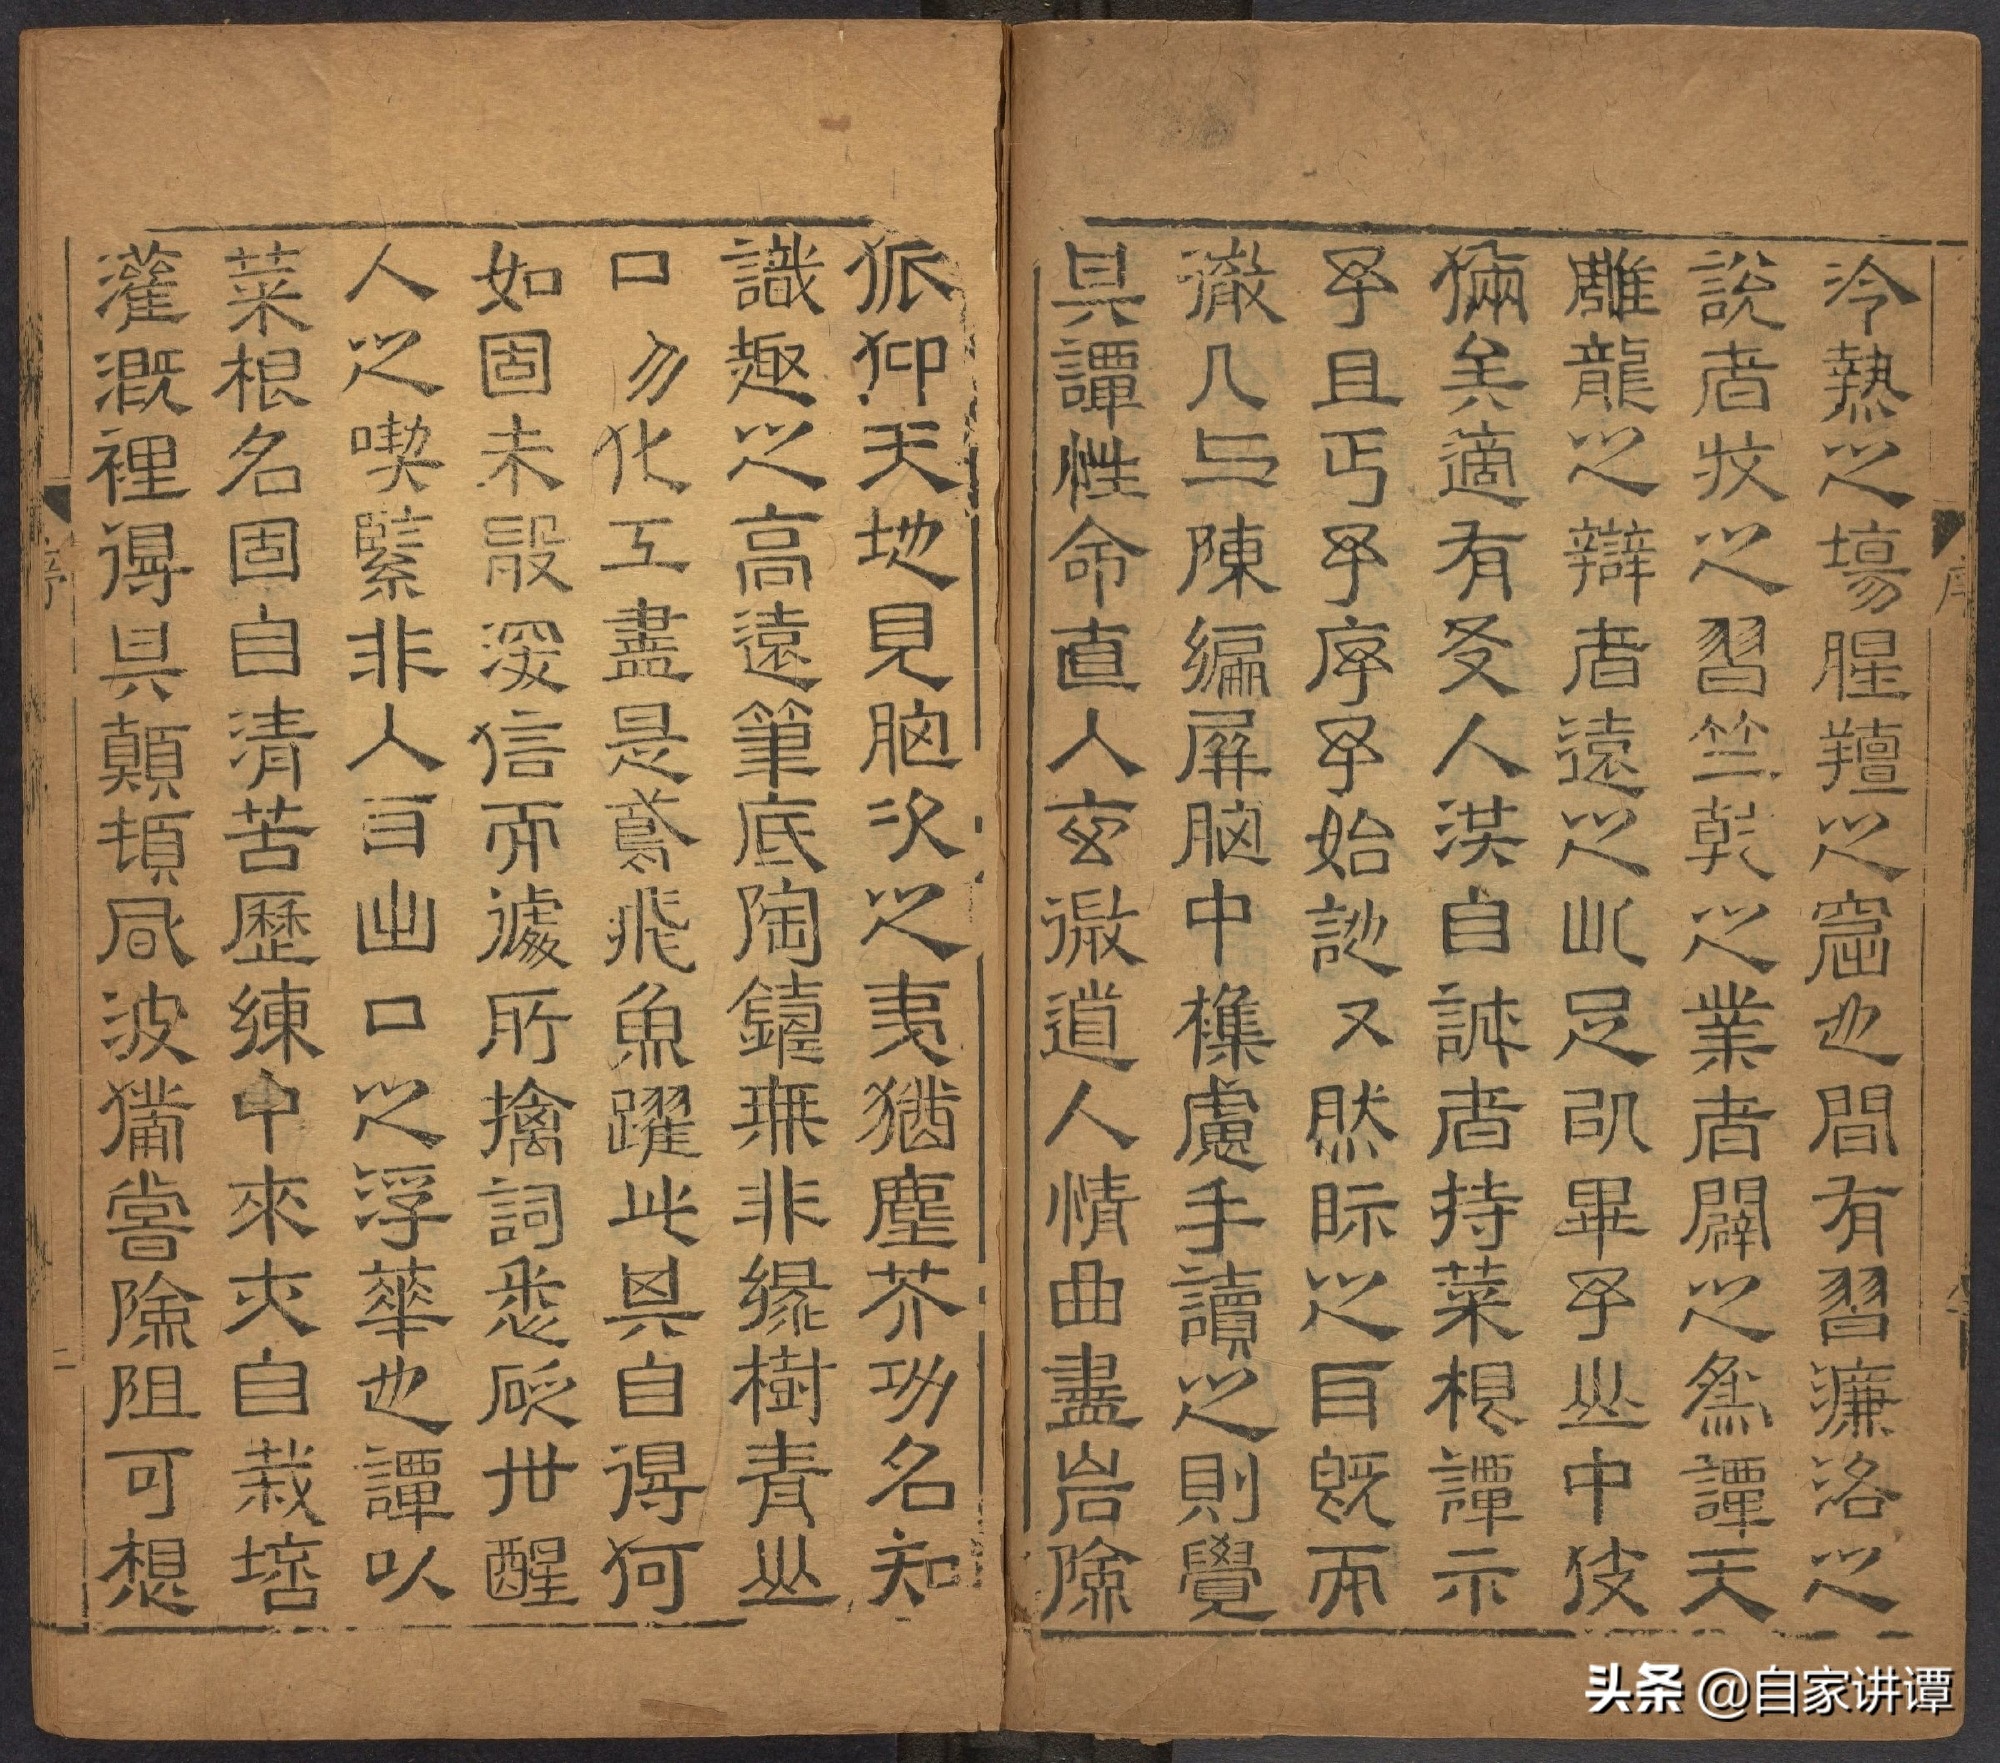 冷熱之場腥羶之窟也間有習濂洛之
說者牧之習竺乾之業者闢之為譚天
雕龍之辯者遠之此足以畢予山中伎
倆矣適有友人洪自誠者持菜根譚示
予且丐予序予始訑又然眎之耳既而
徹几上陳編屏胸中襍慮手讀之則覺
其譚性命直入玄微道人情曲盡岩險
俯仰天地見胸次之夷猶塵芥功名知
識趣之高遠筆底陶鑄無非綠樹青山
口吻化工盡是鳶飛魚躍此其自得何
如固未能深信而據所摛詞悉砭世醒
人之喫緊非入耳出口之浮華也譚以
菜根名固自清苦歷練中來亦自栽培
灌溉裡得其顛頓風波備嘗險阻可想
序
序
二
头条 @自家讲谭